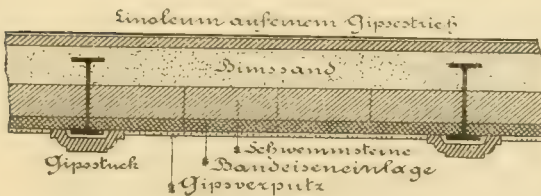 Linoleum auf einem Gipsestrich
Bimssand
Schwemmsteine
Gipsstuck
Bandeiseneinlage
Gipsverputz